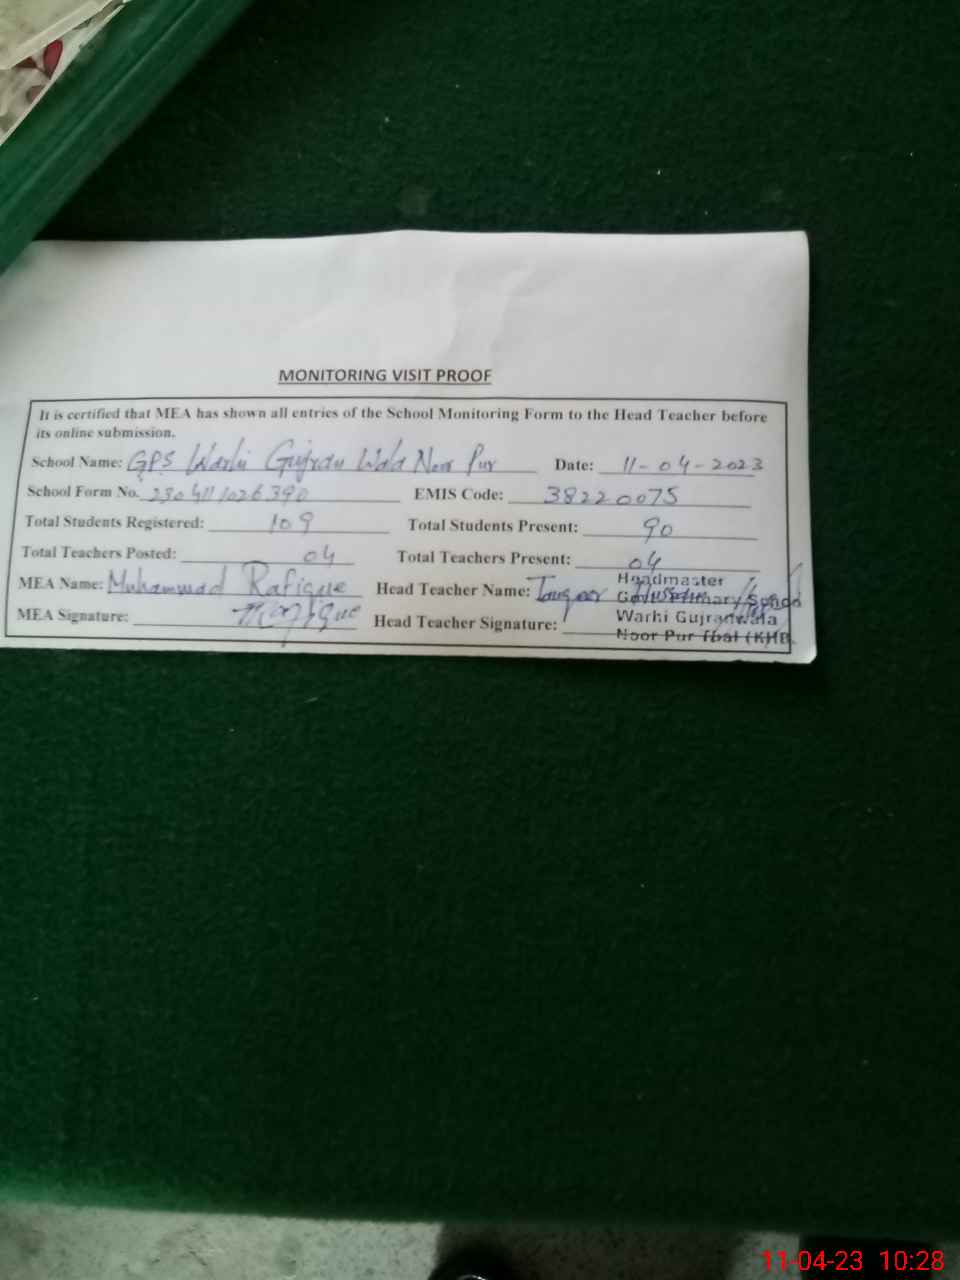 MONITORING VISIT PROOF
It is certified that MEA has shown all entries of the School Monitoring Form to the Head Teacher before
its online submission.
School Name: GPS Warhi Gujran Wala Noor Pur Date: 11-04-2023
School Form No. 2304111026390 EMIS Code: 38220075
Total Students Registered: 109 Total Students Present: 90
Total Teachers Posted: 04 Total Teachers Present: 04
MEA Name: Muhammad Rafique Head Teacher Name: Tauqeer
Headmaster
Govt. Primary School
MEA Signature: Rafique Head Teacher Signature:
Warhi Gujranwala
Noor Pur Thal (KHB
11-04-23 10:28